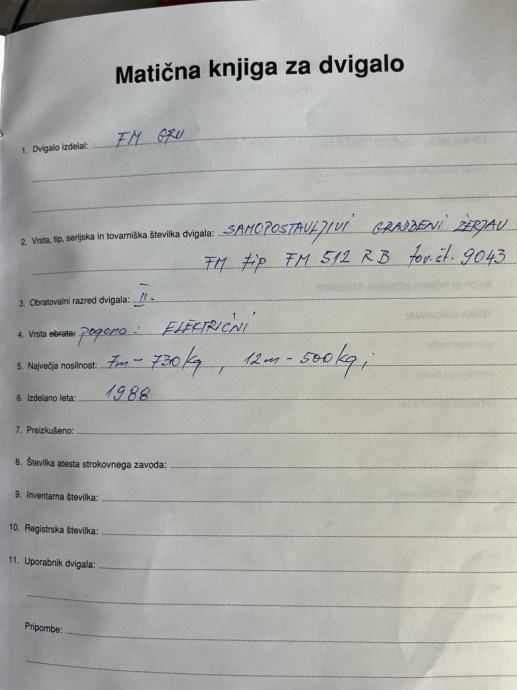 Matična knjiga za dvigalo
1. Dvigalo izdelal: FM GRU
2. Vrsta, tip, serijska in tovarniška številka dvigala: SAMOPOSTAVLJIVI GRADBENI ŽERJAV
FM tip FM 512 RB tov.št. 9043
3. Obratovalni razred dvigala: II.
4. Vrsta obrata: pogona: ELEKTRIČNI
5. Največja nosilnost: 7m - 730 kg, 12m - 500 kg;
6. Izdelano leta: 1988
7. Preizkušeno:
8. Številka atesta strokovnega zavoda:
9. Inventarna številka:
10. Registrska številka:
11. Uporabnik dvigala:
Pripombe: